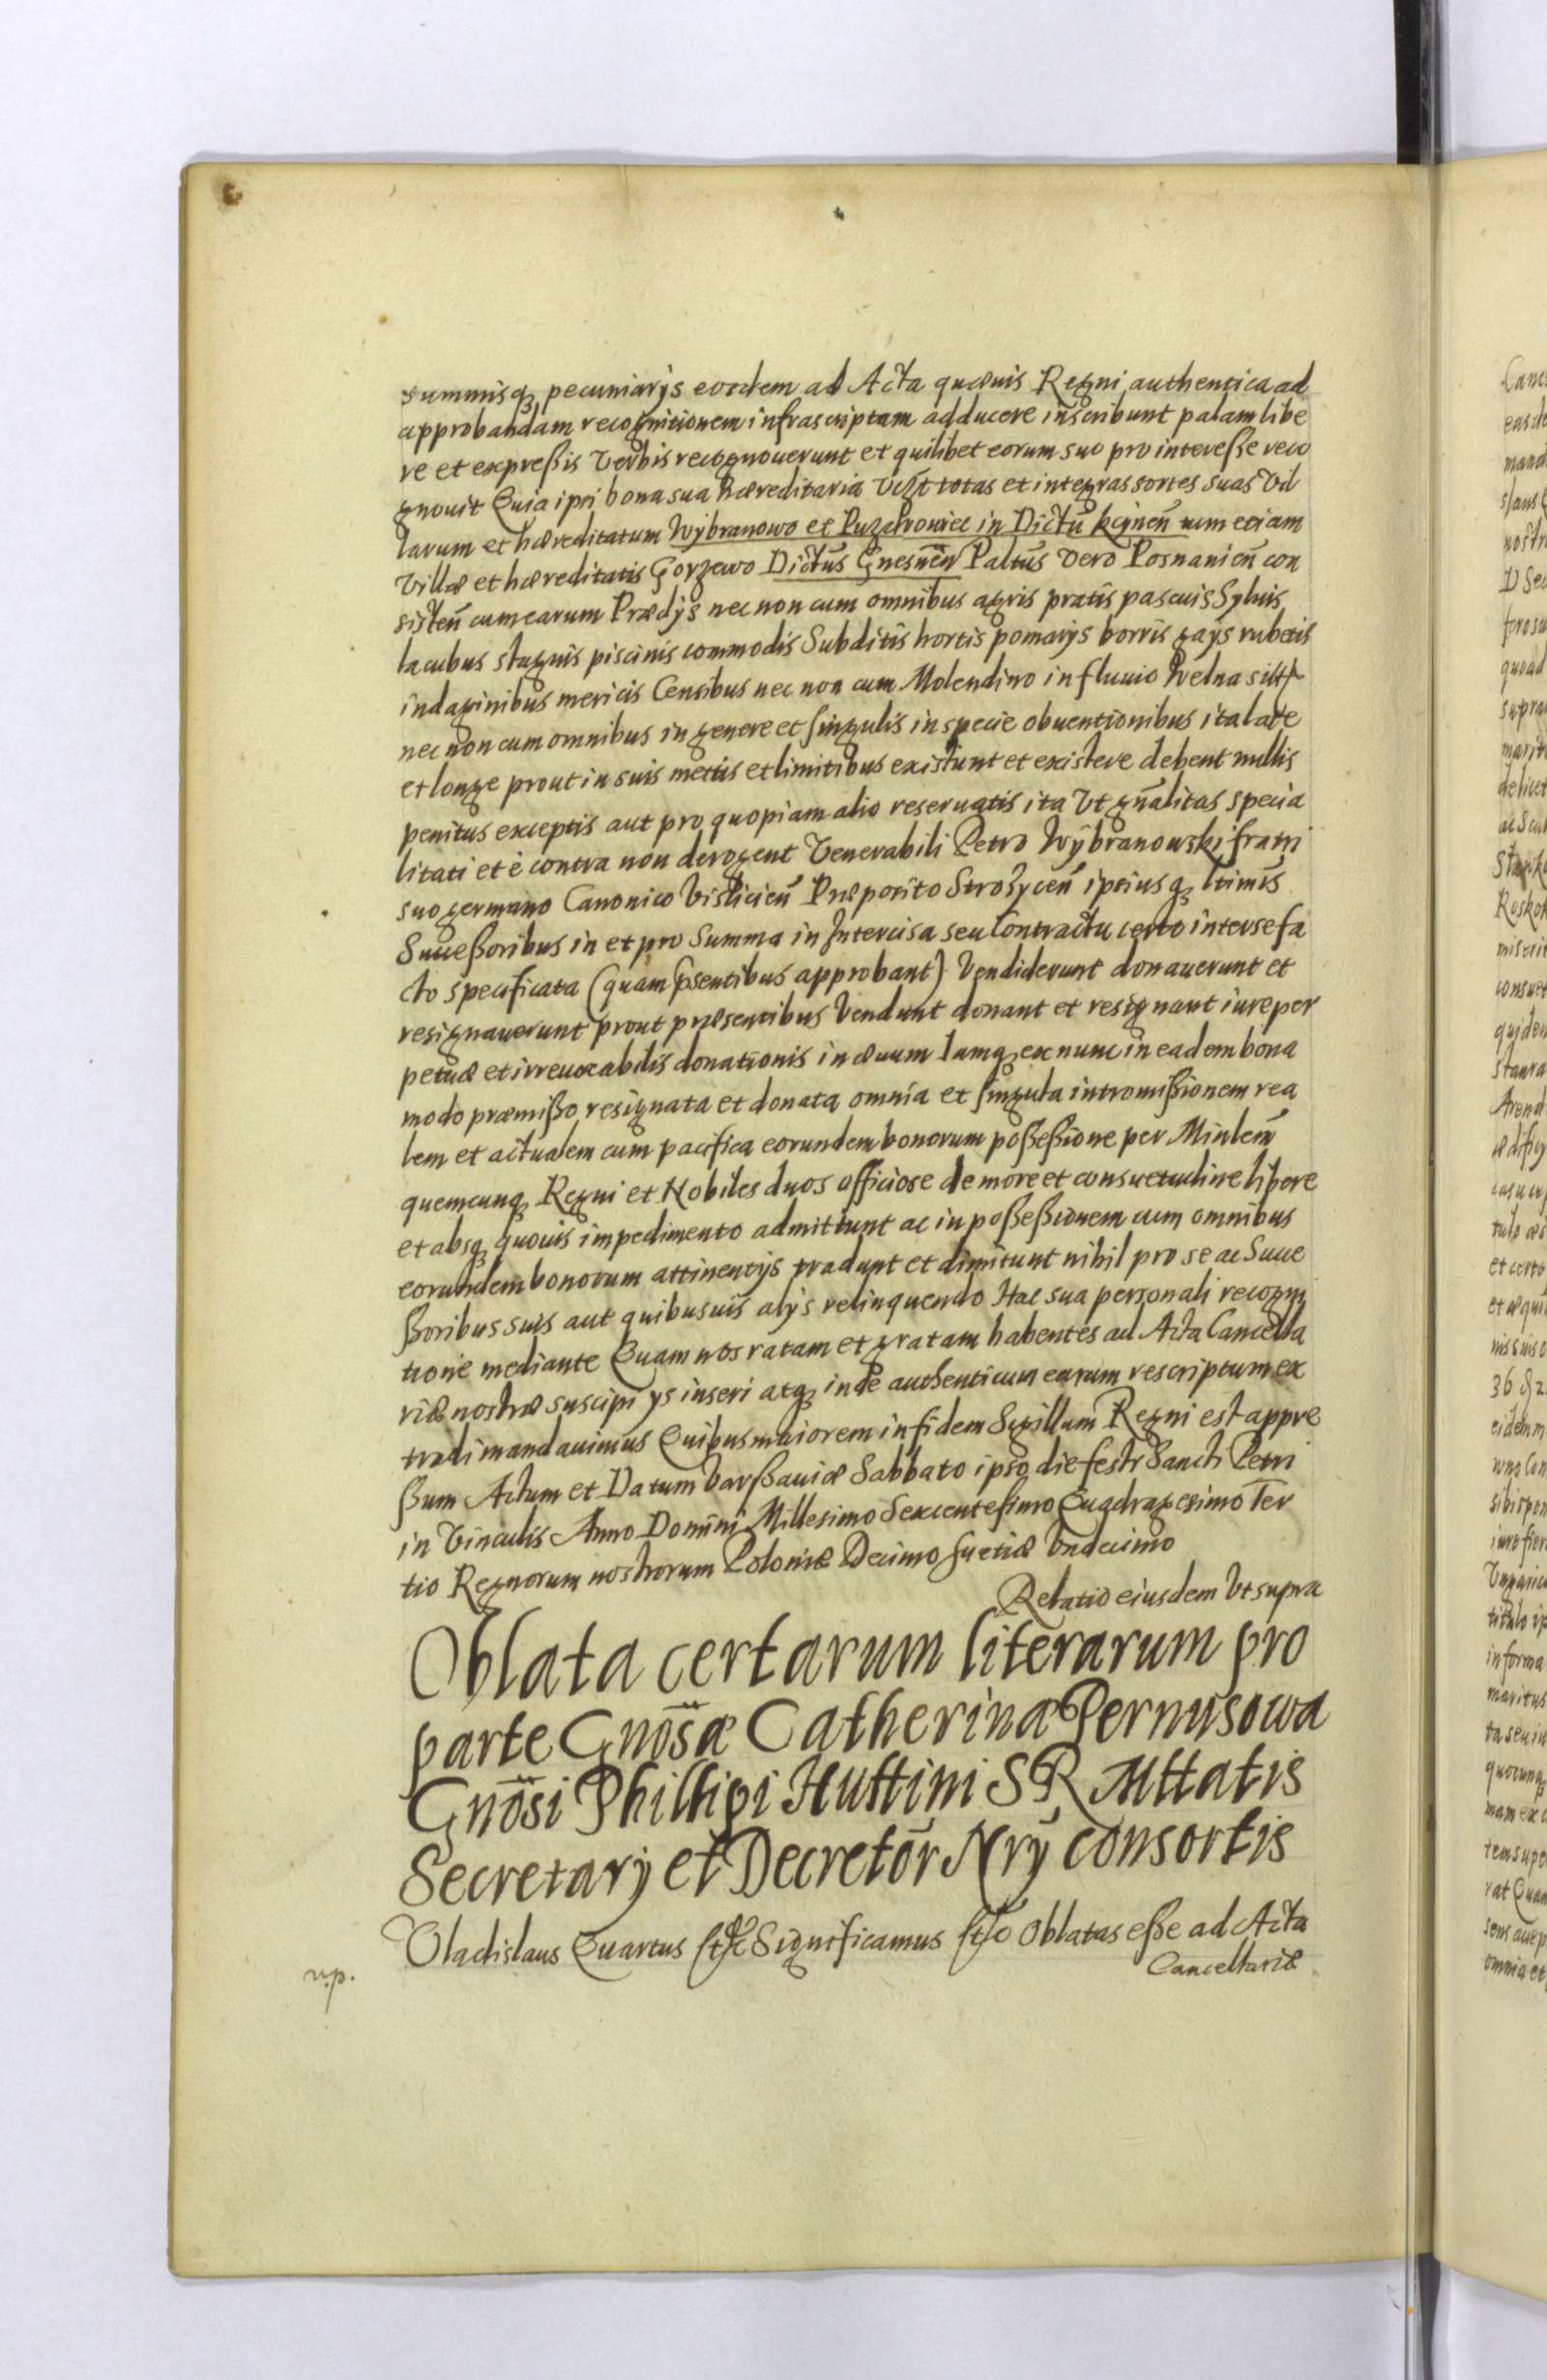 summisq pecuniarijs eosdem ad Acta quævis Regni authentica ad
approbandam recognitionem infrascriptam adducere inscribunt palam libe
re et expreßis Verbis recognoverunt et quilibet eorum suo pro intereße reco
gnouit Quia ipsi bona sua hæreditaria Vczt totas et integras sortes suas Vil
larum et hæreditatum Wybranowo et Puzdrowiec in Dictũ kcynen̄ tum etiam
Villæ et hæreditatis Gorzewo Dictũs Gnesnen̄ Paltũs Vero Posnanien̄ con
sisten̄ cum earum Prædijs nec non cum omnibus agris pratis pascuis Syluis
lacubus stagnis piscinis commodis Subditis hortis pomarijs borris gays rubetis
indaginibus mericis Censibus nec non cum Molendino in fluuio Welna
nec non cum omnibus in genere et singulis in specie obuentionibus ita late
et longe prout in suis mettis et limitibus existunt et existere debent nullis
penitus exceptis aut pro quopiam alio reseruatis ita Vt gn̄alitas specia
litati et è contra non derogent Venerabili Petro Wybranowski fratri
suo germano Canonico Vislicien̄ Præposito Strożycen̄ ipsiusq ltimis
Succeßoribus in et pro Summa in Intercisa seu Contractu certo inter se fa
cto specificata (quam p̄sentibus approbant) Vendiderunt donauerunt et
resignauerunt prout præsentibus Vendunt donant et resignant iure per
petuæ et irreuocabilis donationis in æuum Iamq ex nunc in eadem bona
modo præmißo resignata et donata omnia et singula intromißionem rea
lem et actualem cum pacifica eorundem bonorum poßeßione per Minlem̄
quemcunq Regni et Nobiles duos officiose de more et consuetudine libere
et absq quouis impedimento admittunt ac in poßeßionem cum omnibus
eorundem bonorum attinentijs tradunt et dimitunt nihil pro se ac Succe
ßoribus suis aut quibusuis alijs relinquendo Hac sua personali recogni
tione mediante Quam nos ratam et gratam habentes ad Acta Cancella
riæ nostræ suscipi ijs inseri atq inde authenticum earum rescriptum ex
tradi mandauimus Quibus maiorem in fidem Sigillum Regni est appre
ßum Actum et Datum Varßauiæ Sabbato ipso die festi Sancti Petri
in Vinculis Anno Domini Millesimo Sexcentesimo Quadragesimo Ter
tio Regnorum nostrorum Poloniæ Decimo Suetiæ Vndecimo
Relatio eiusdem Vt supra
Oblata certarum literarum pro
parte Gnōsæ Catherinæ Pernusowa
Gnōsi Phillipi Huttini SR Mttatis
Secretarij et Decretōr Nrỹ consortis
Vladislaus Quartus Significamus Oblatas eße ad Acta
Cancellariæ